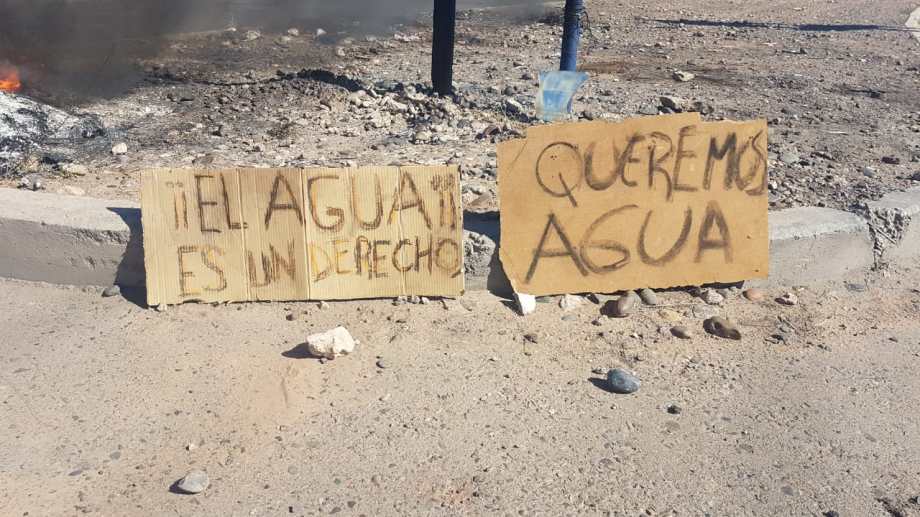 ¡¡EL AGUA!!
ES UN DERECHO
QUEREMOS
AGUA